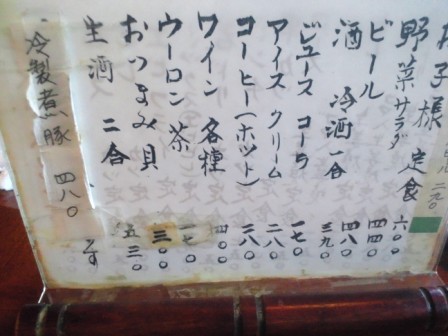 子様
定食 六〇〇
野菜サラダ 四四〇
ビール 四八〇
酒 冷酒一合 三九〇
ジュース コーラ 一七〇
アイスクリーム 二八〇
コーヒー(ホット) 二八〇
ワイン 各種 四〇〇
ウーロン茶 一七〇
おつまみ貝 三〇〇
生酒 二合 五三〇
冷製煮豚 四八〇